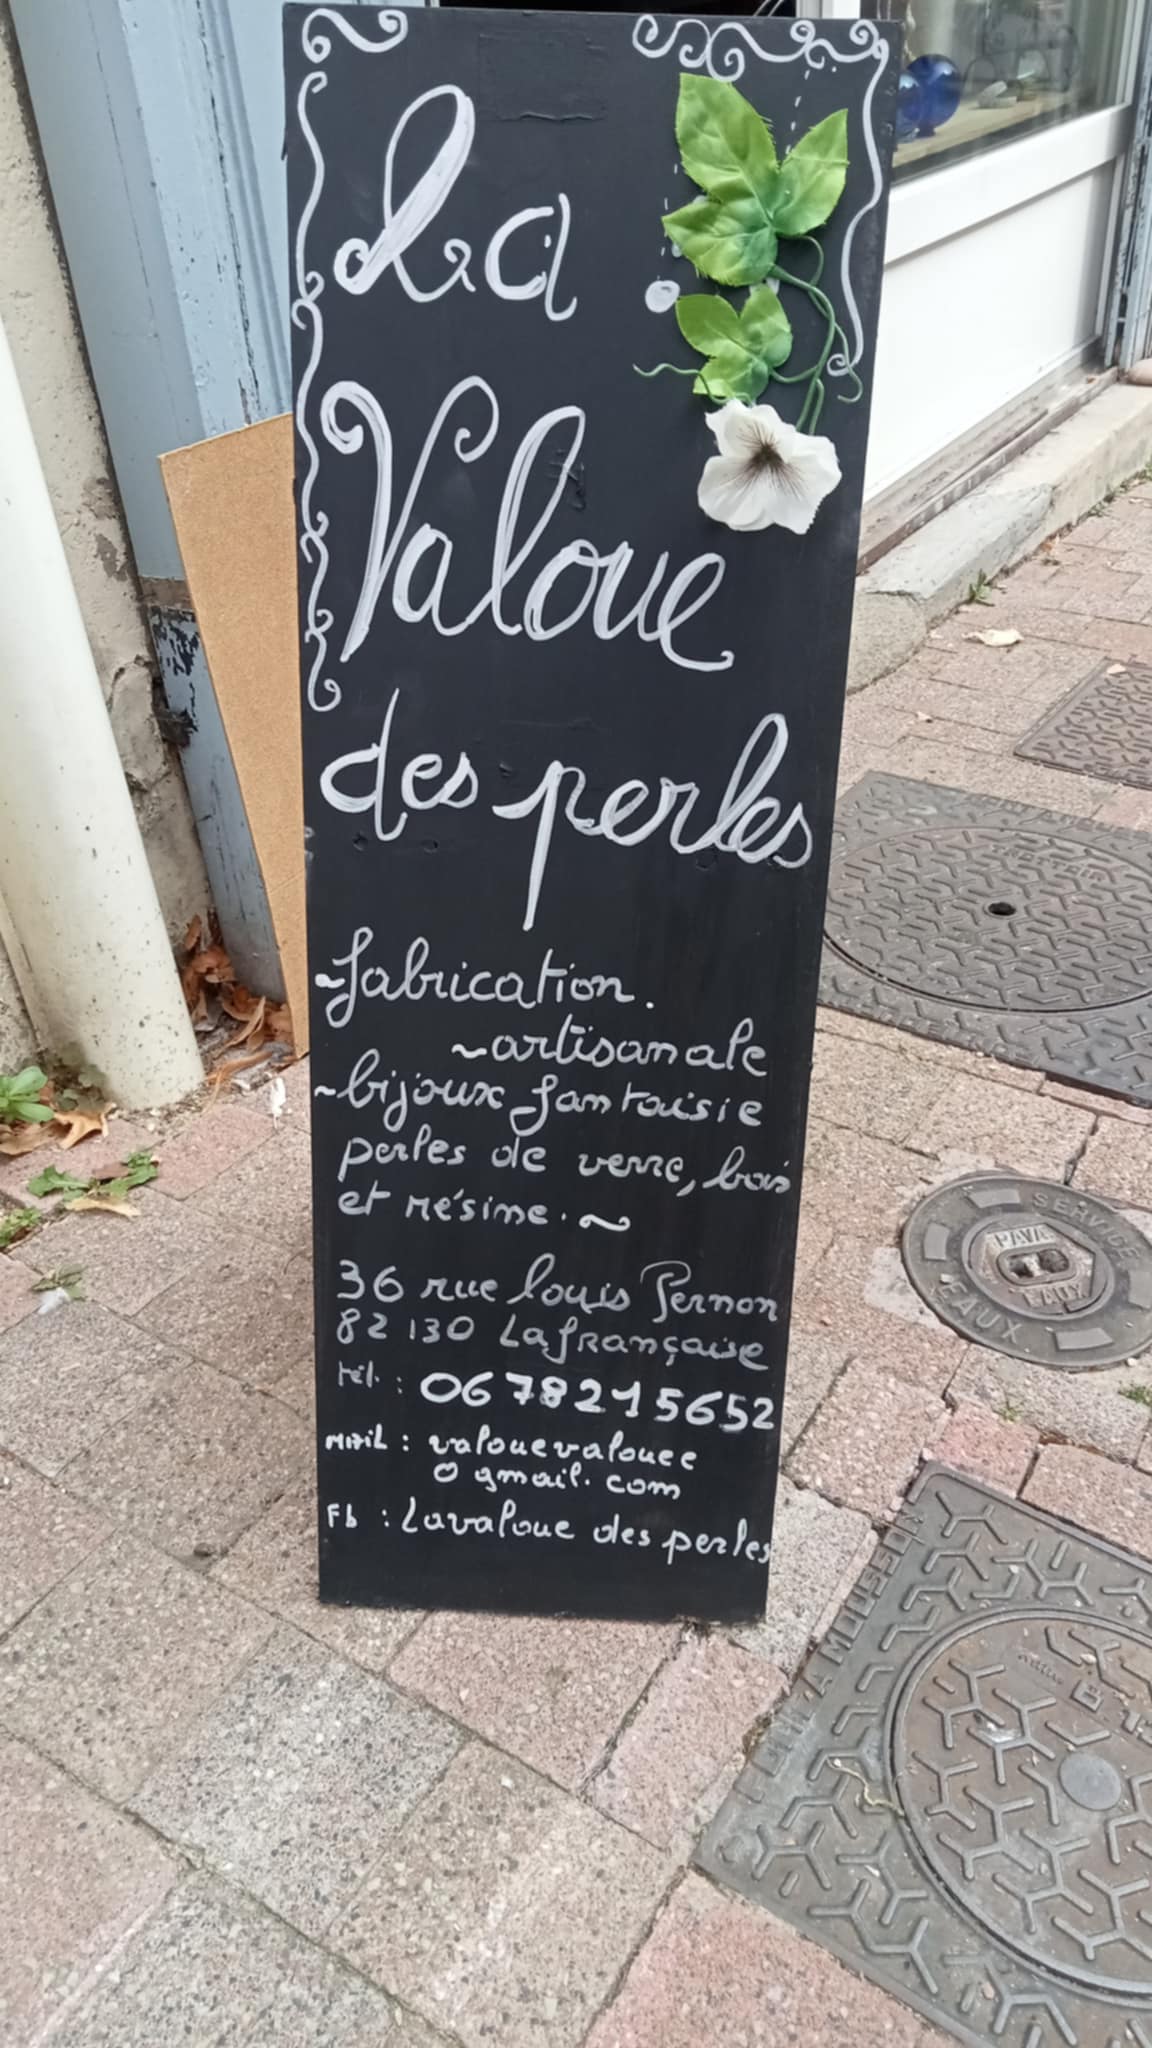 La
Valoue
des perles
~fabrication.
~artisanale
~bijoux fantaisie
perles de verre, bois
et résine. ~
36 rue louis Pernon
82 130 Lafrançaise
tél. : 0678215652
MAil : valouevalouee
@ gmail. com
Fb : Lavaloue des perles
SERVICE
PAVA
EAUX
EAUX